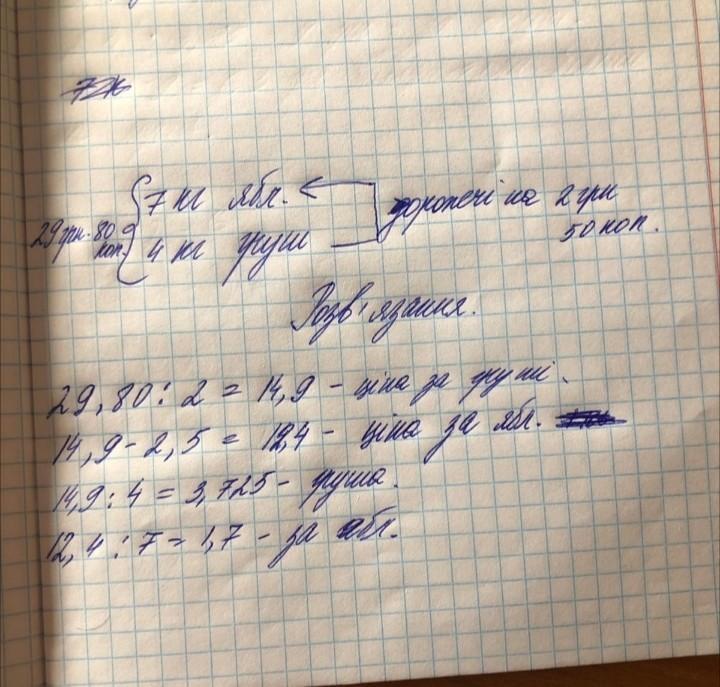 7 кг ябл.
29 грн. 80 коп.
4 кг груш
дорожчі на 2 грн
50 коп.
Розв'язання.
29,80 : 2 = 14,9 - ціна за груші.
14,9 - 2,5 = 12,4 - ціна за ябл.
14,9 : 4 = 3,725 - груша.
12,4 : 7 = 1,7 - за ябл.